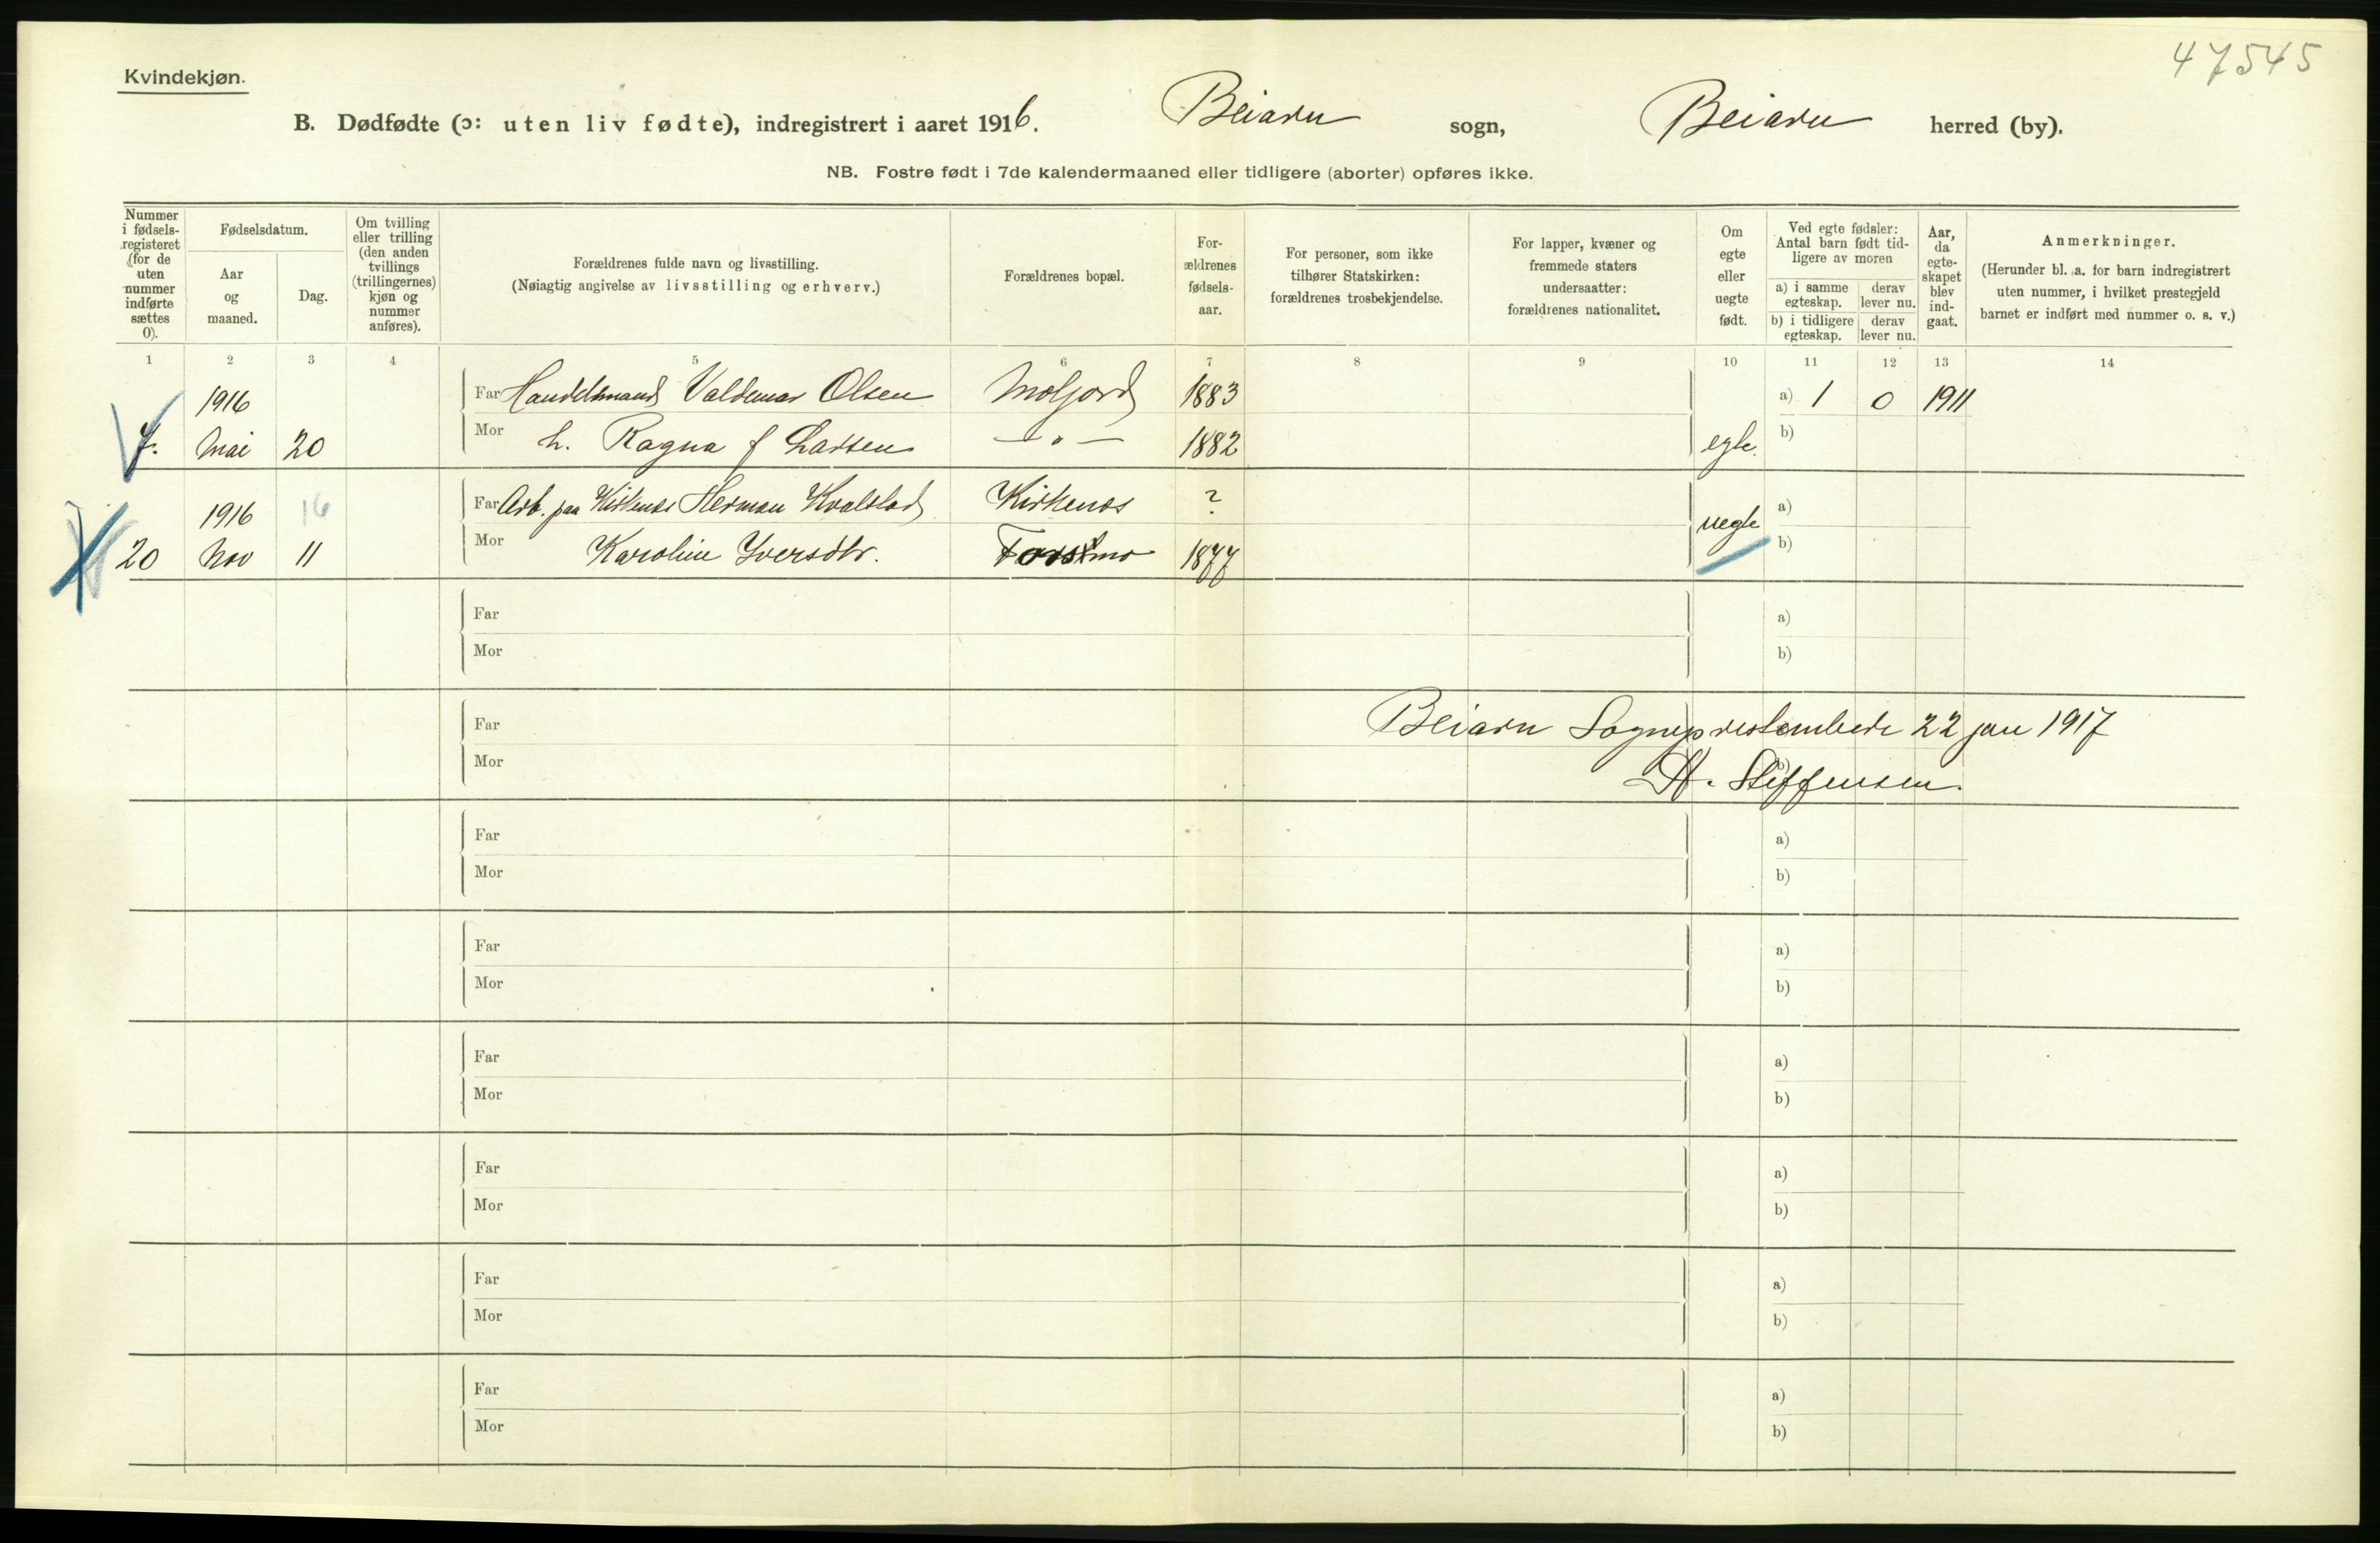 47545
Kvindekjøn.
B. Dødfødte (ɔ: uten liv fødte), indregistrert i aaret 1916. Beiarn sogn, Beiarn herred (by).
NB. Fostre født i 7de kalendermaaned eller tidligere (aborter) opføres ikke.
Nummer i fødsels-registeret (for de uten nummer indførte sættes 0).
Fødselsdatum.
Aar og maaned.
Dag.
Om tvilling eller trilling (den anden tvillings (trillingernes) kjøn og nummer anføres).
Forældrenes fulde navn og livsstilling.
(Nøiagtig angivelse av livsstilling og erhverv.)
Forældrenes bopæl.
For-ældrenes fødsels-aar.
For personer, som ikke tilhører Statskirken: forældrenes trosbekjendelse.
For lapper, kvæner og fremmede staters undersaatter: forældrenes nationalitet.
Om egte eller uegte født.
Ved egte fødsler: Antal barn født tid-ligere av moren
a) i samme egteskap.
derav lever nu.
b) i tidligere egteskap.
derav lever nu.
Aar, da egte-skapet blev ind-gaat.
Anmerkninger.
(Herunder bl. a. for barn indregistrert uten nummer, i hvilket prestegjeld barnet er indført med nummer o. s. v.)
1 2 3 4 5 6 7 8 9 10 11 12 13 14
1916 Far Handelsmand Valdemar Olsen Moldjord 1883 a) 1 0 1911
7. Mai 20 Mor h. Ragna f Larsen — " — 1882 egte. b)
1916 16 Far Arb. paa Kirkenes Herman Kvalstad Kirkenes ? uegte a)
20 Nov 11 Mor Karoline Iversdtr. Forsmo 1877 b)
Far a)
Mor b)
Far Beiarn Sogneprestembede 22 jan 1917
Mor A. Steffensen.
Far a)
Mor b)
Far a)
Mor b)
Far a)
Mor b)
Far a)
Mor b)
Far a)
Mor b)
Far a)
Mor b)